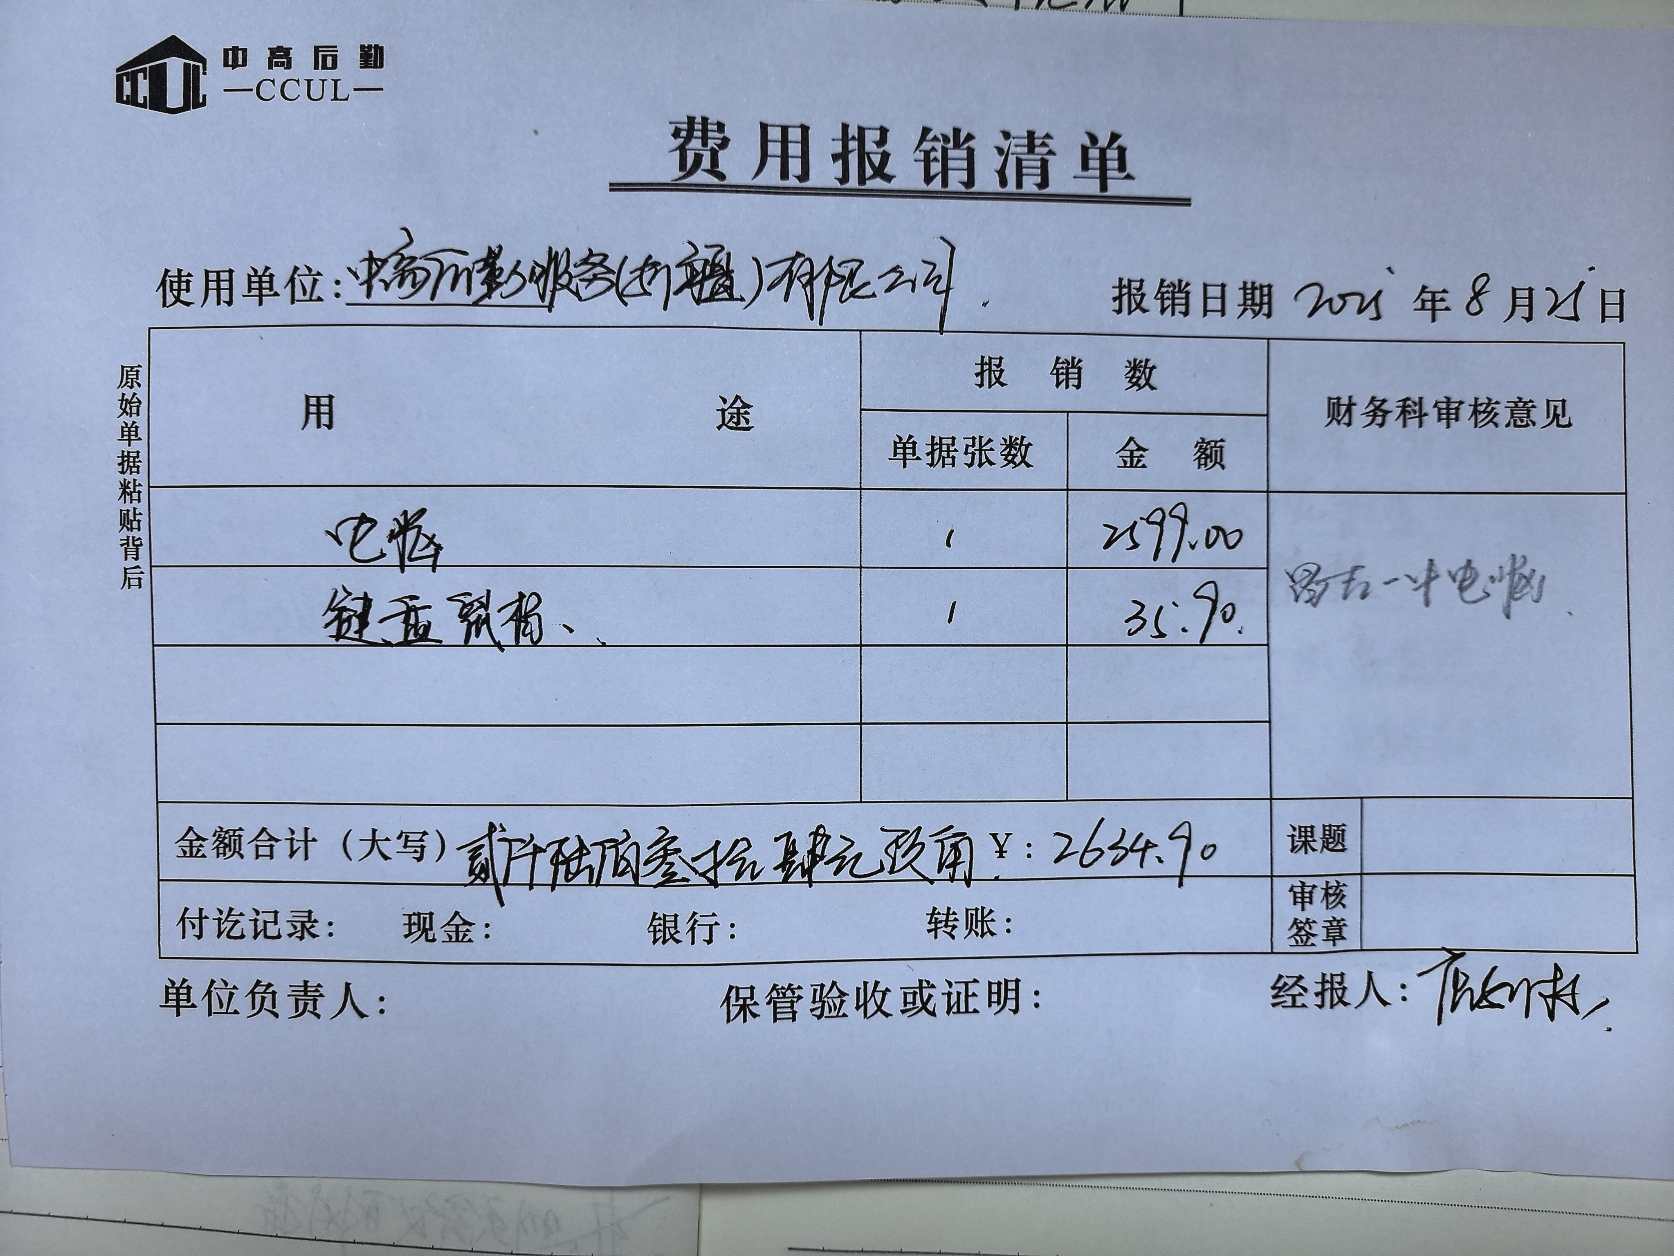 中高后勤
—CCUL—
CCUL
费用报销清单
使用单位:中高后勤服务(新疆)有限公司. 报销日期 2025 年 8 月 25 日
原始单据粘贴背后
用 途 报 销 数 财务科审核意见
单据张数 金 额
电脑 1 2599.00
键盘鼠标、 1 35.90.
一叶电脑
金额合计（大写）贰仟陆佰叁拾肆元玖角 ¥: 2634.90 课题
付讫记录: 现金: 银行: 转账: 审核签章
单位负责人: 保管验收或证明: 经报人: